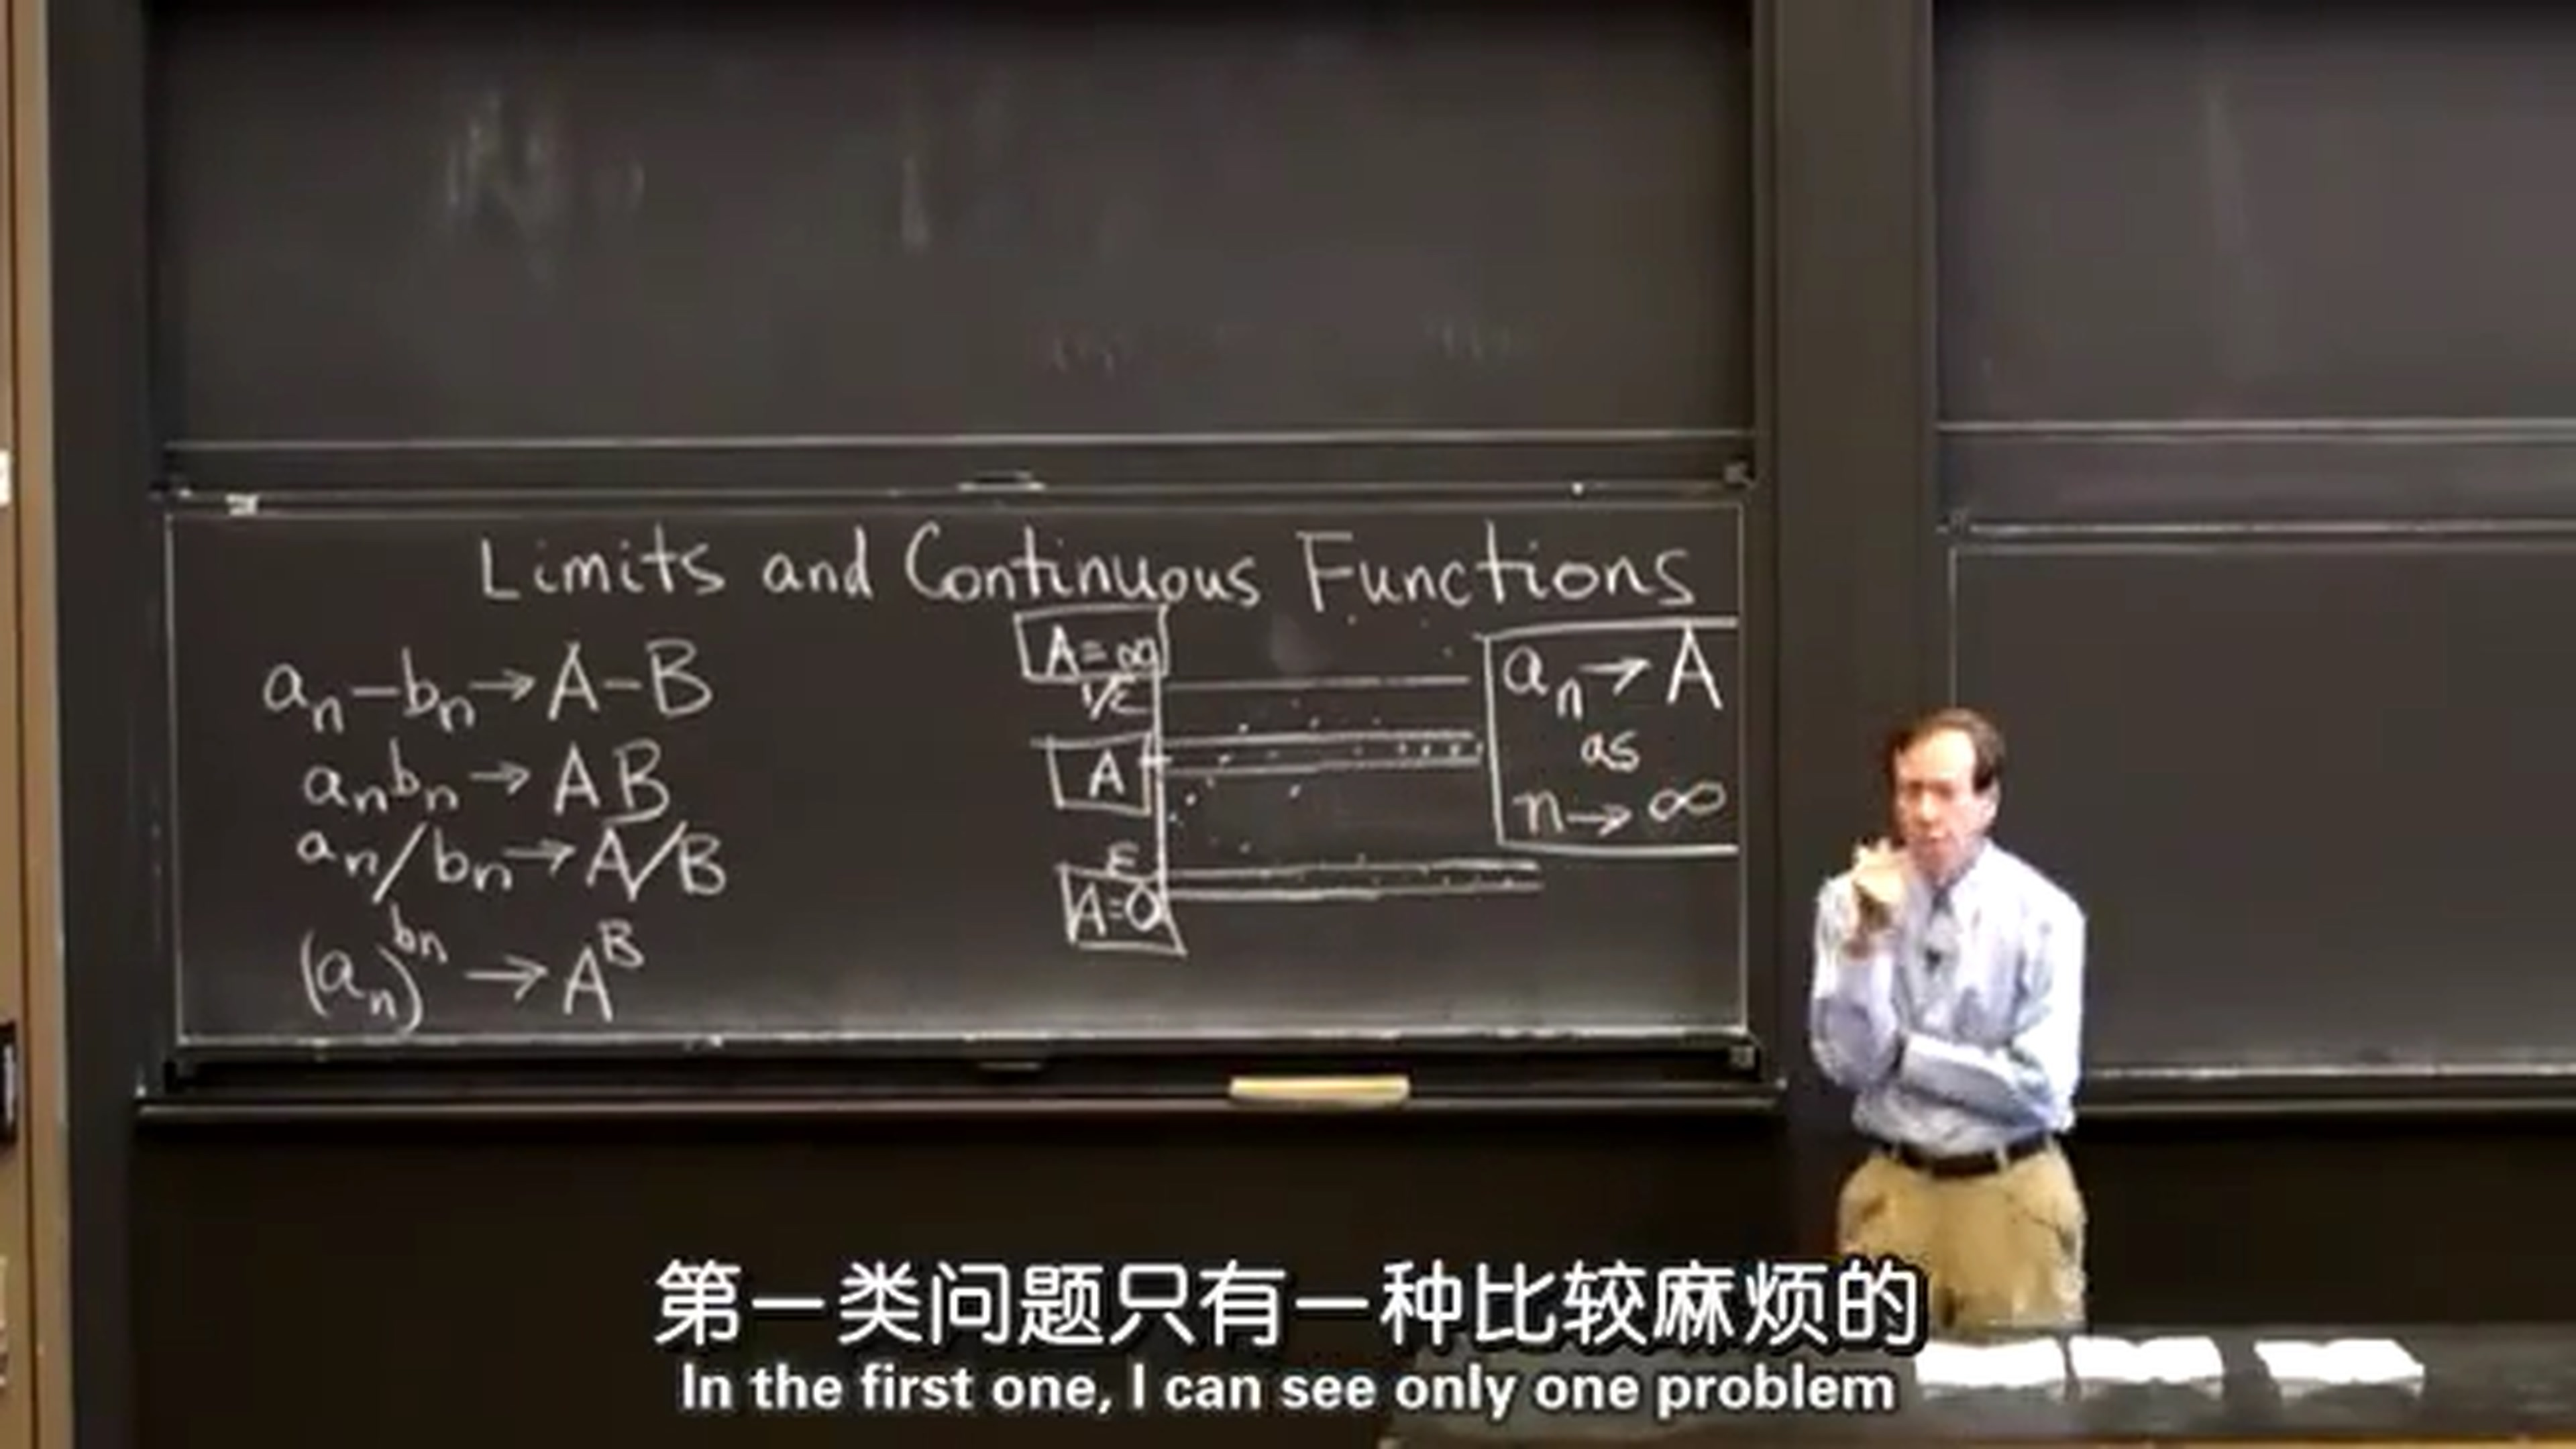 Limits and Continuous Functions
aₙ−bₙ→A−B
aₙbₙ→AB
aₙ/bₙ→A/B
(aₙ)^bₙ→A^B
A=∞
1/ε
A
ε
A=0
aₙ→A
as
n→∞
第一类问题只有一种比较麻烦的
In the first one, I can see only one problem